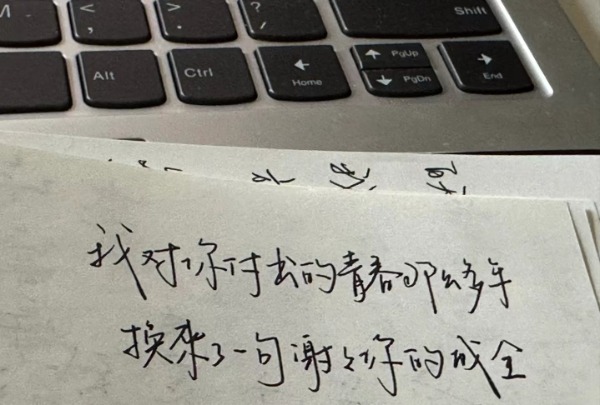 M < , > . ? / Shift
Alt Ctrl ← Home ↑ PgUp ↓ PgDn → End
我对你付出的青春那么多年
换来了一句谢々你的成全